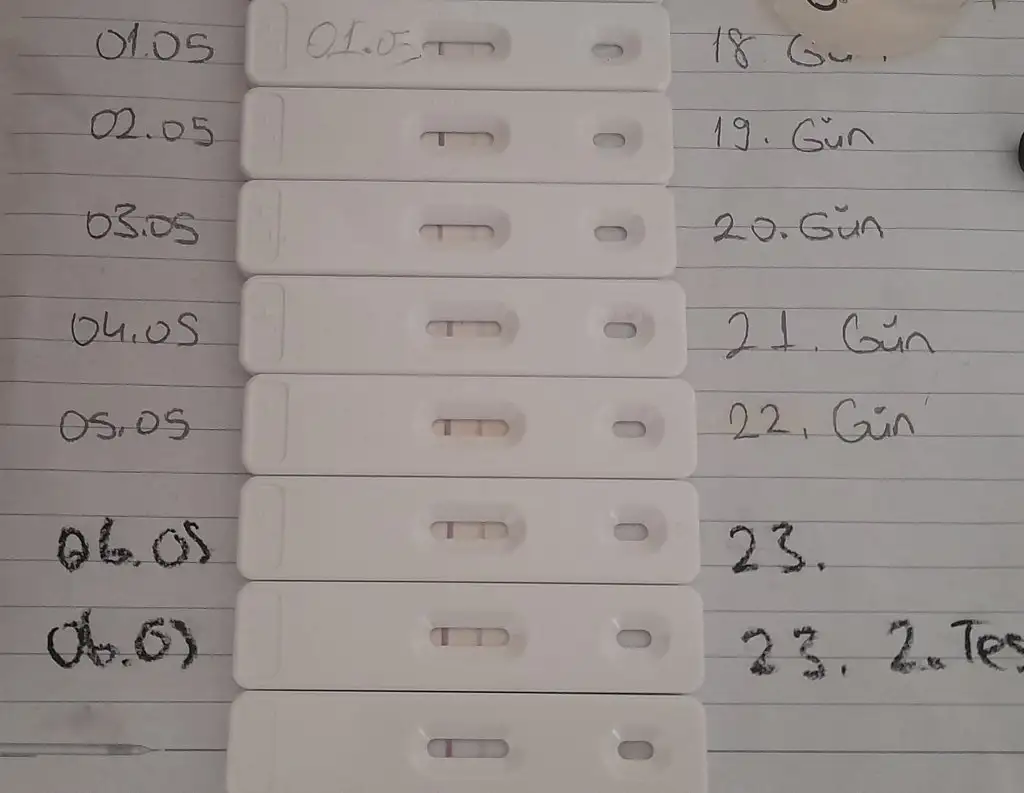 01.05 01.05 18 Gü
02.05 19. Gün
03.05 20. Gün
04.05 21. Gün
05.05 22. Gün
06.05 23.
06.05 23. 2. Tes